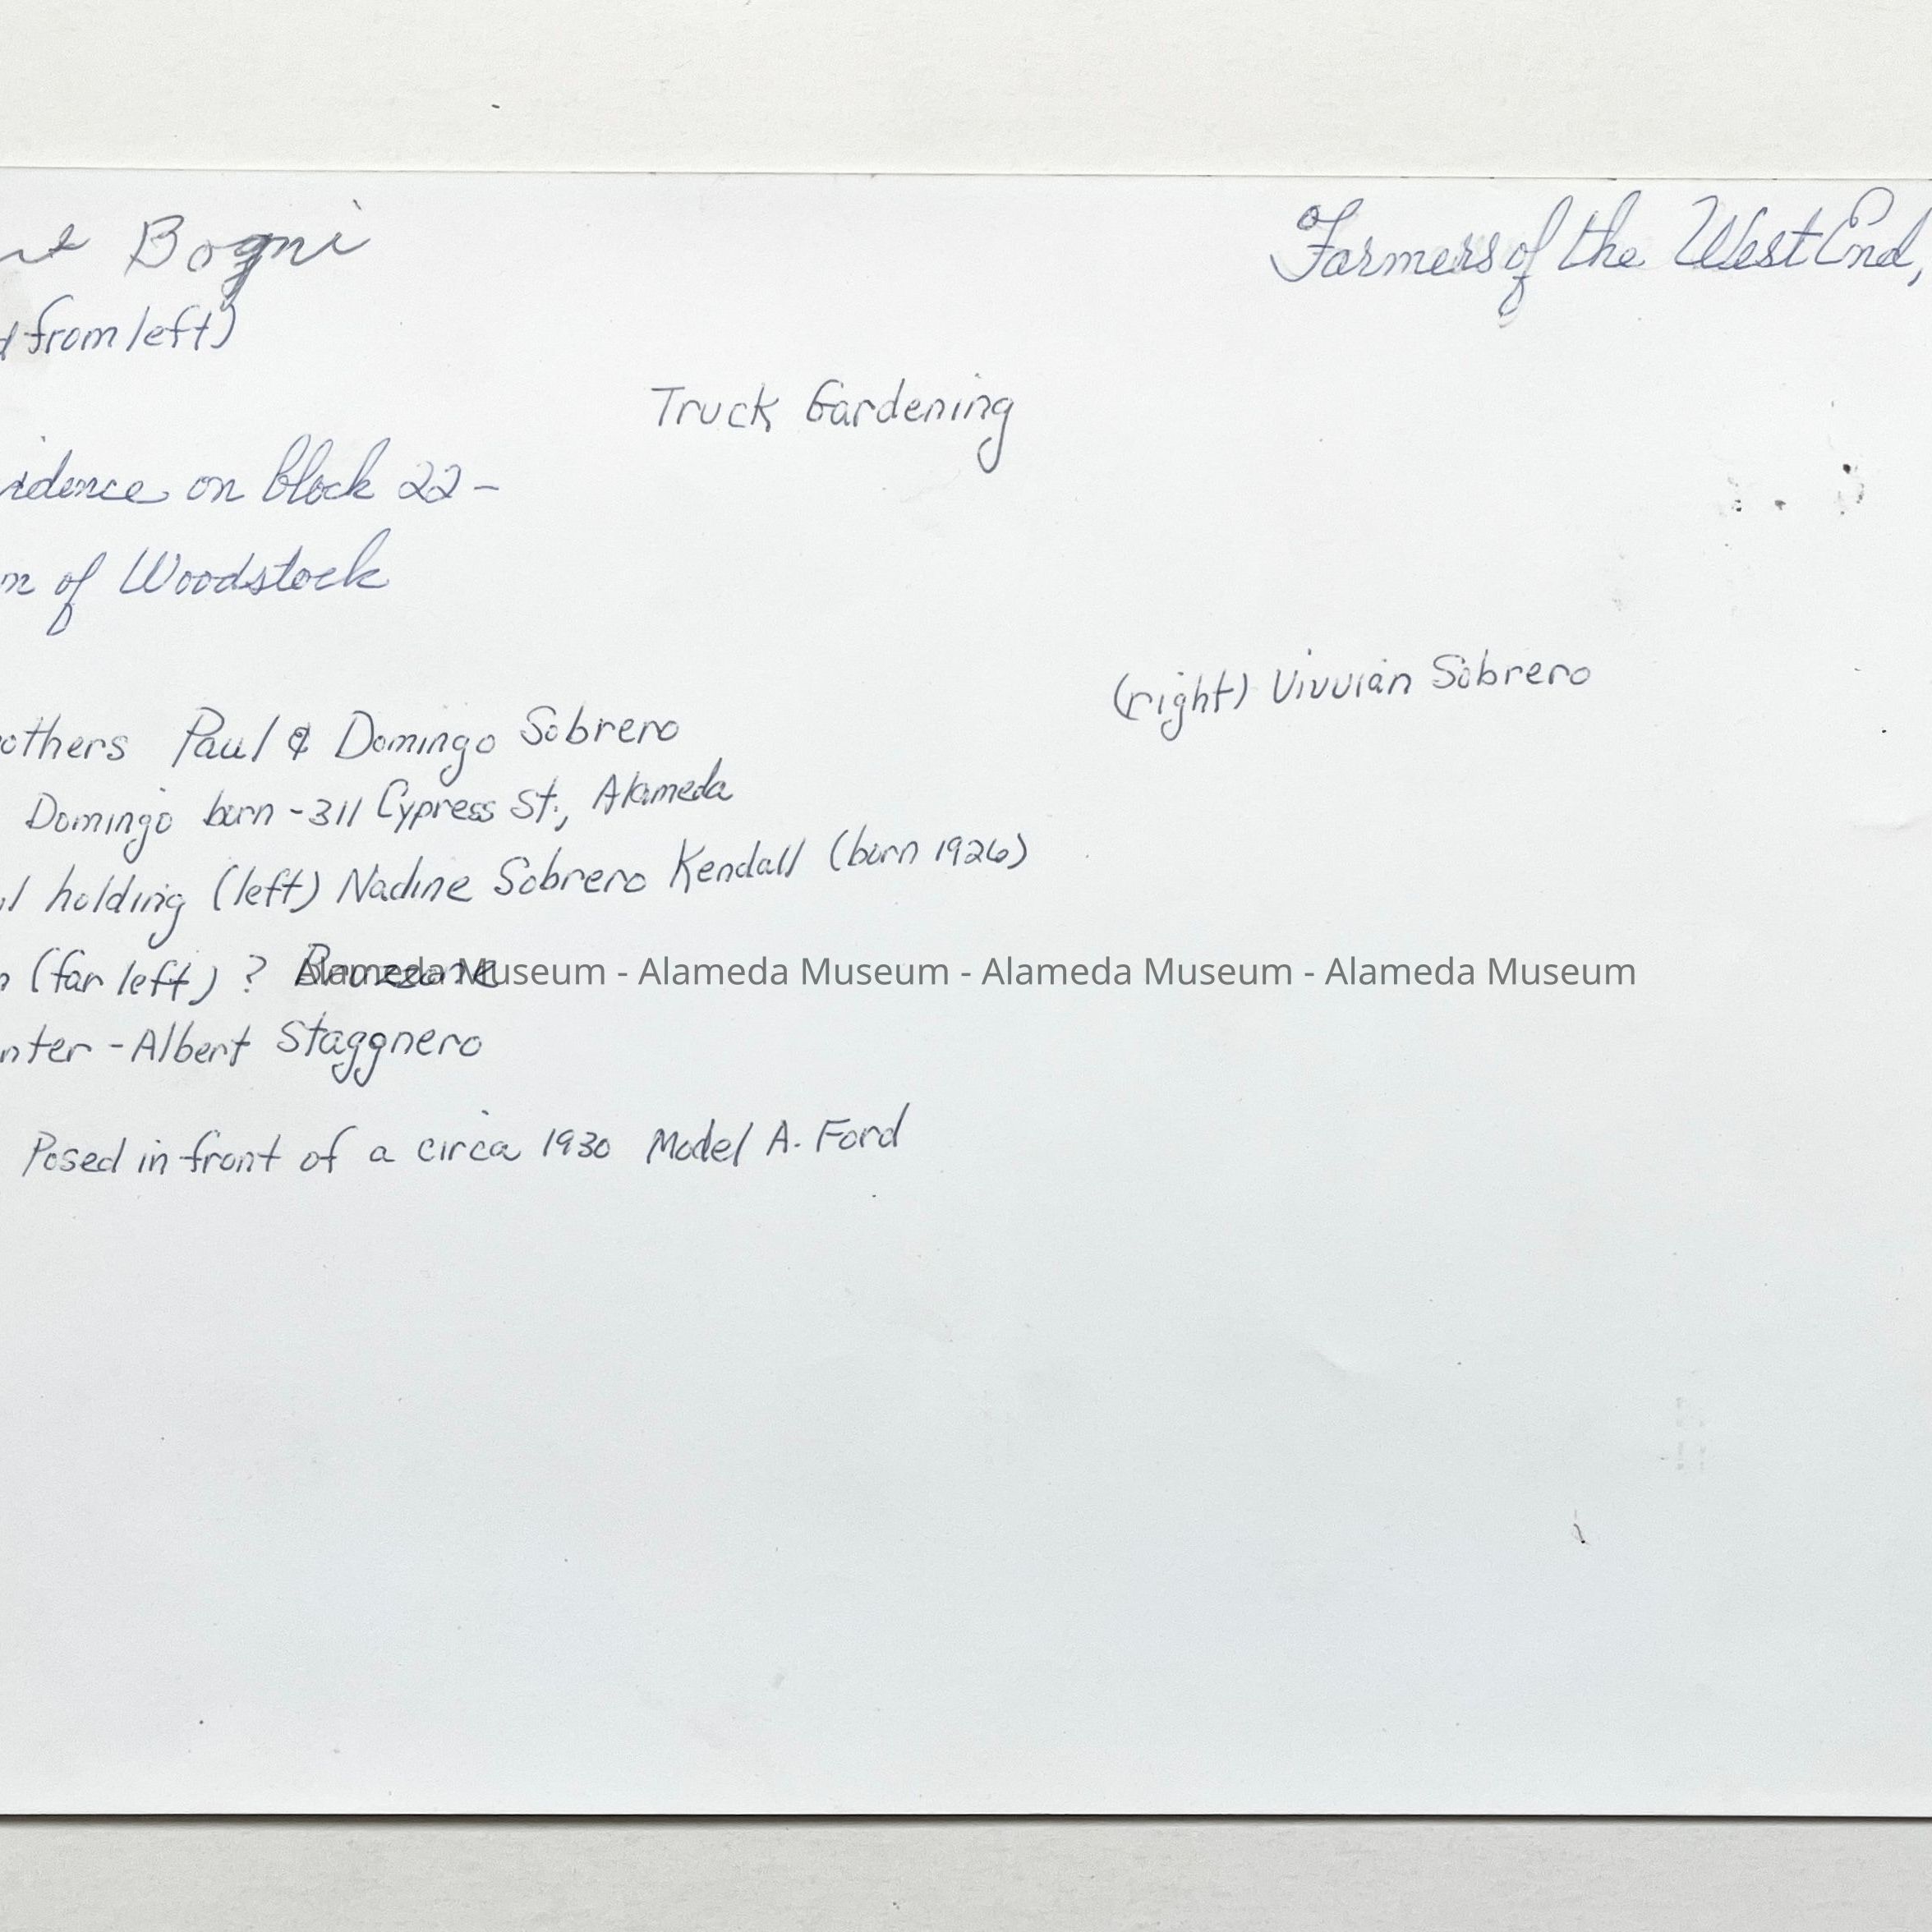 Bogni
Farmers of the West End,
from left)
Truck Gardening
on block 22-
of Woodstock
(right) Vivvian Sobrero
others Paul & Domingo Sobrero
Domingo born - 311 Cypress St., Alameda
holding (left) Nadine Sobrero Kendall (born 1926)
(far left) ? Bruzzone
Alameda Museum - Alameda Museum - Alameda Museum - Alameda Museum
nter - Albert Staggnero
Posed in front of a circa 1930 Model A. Ford